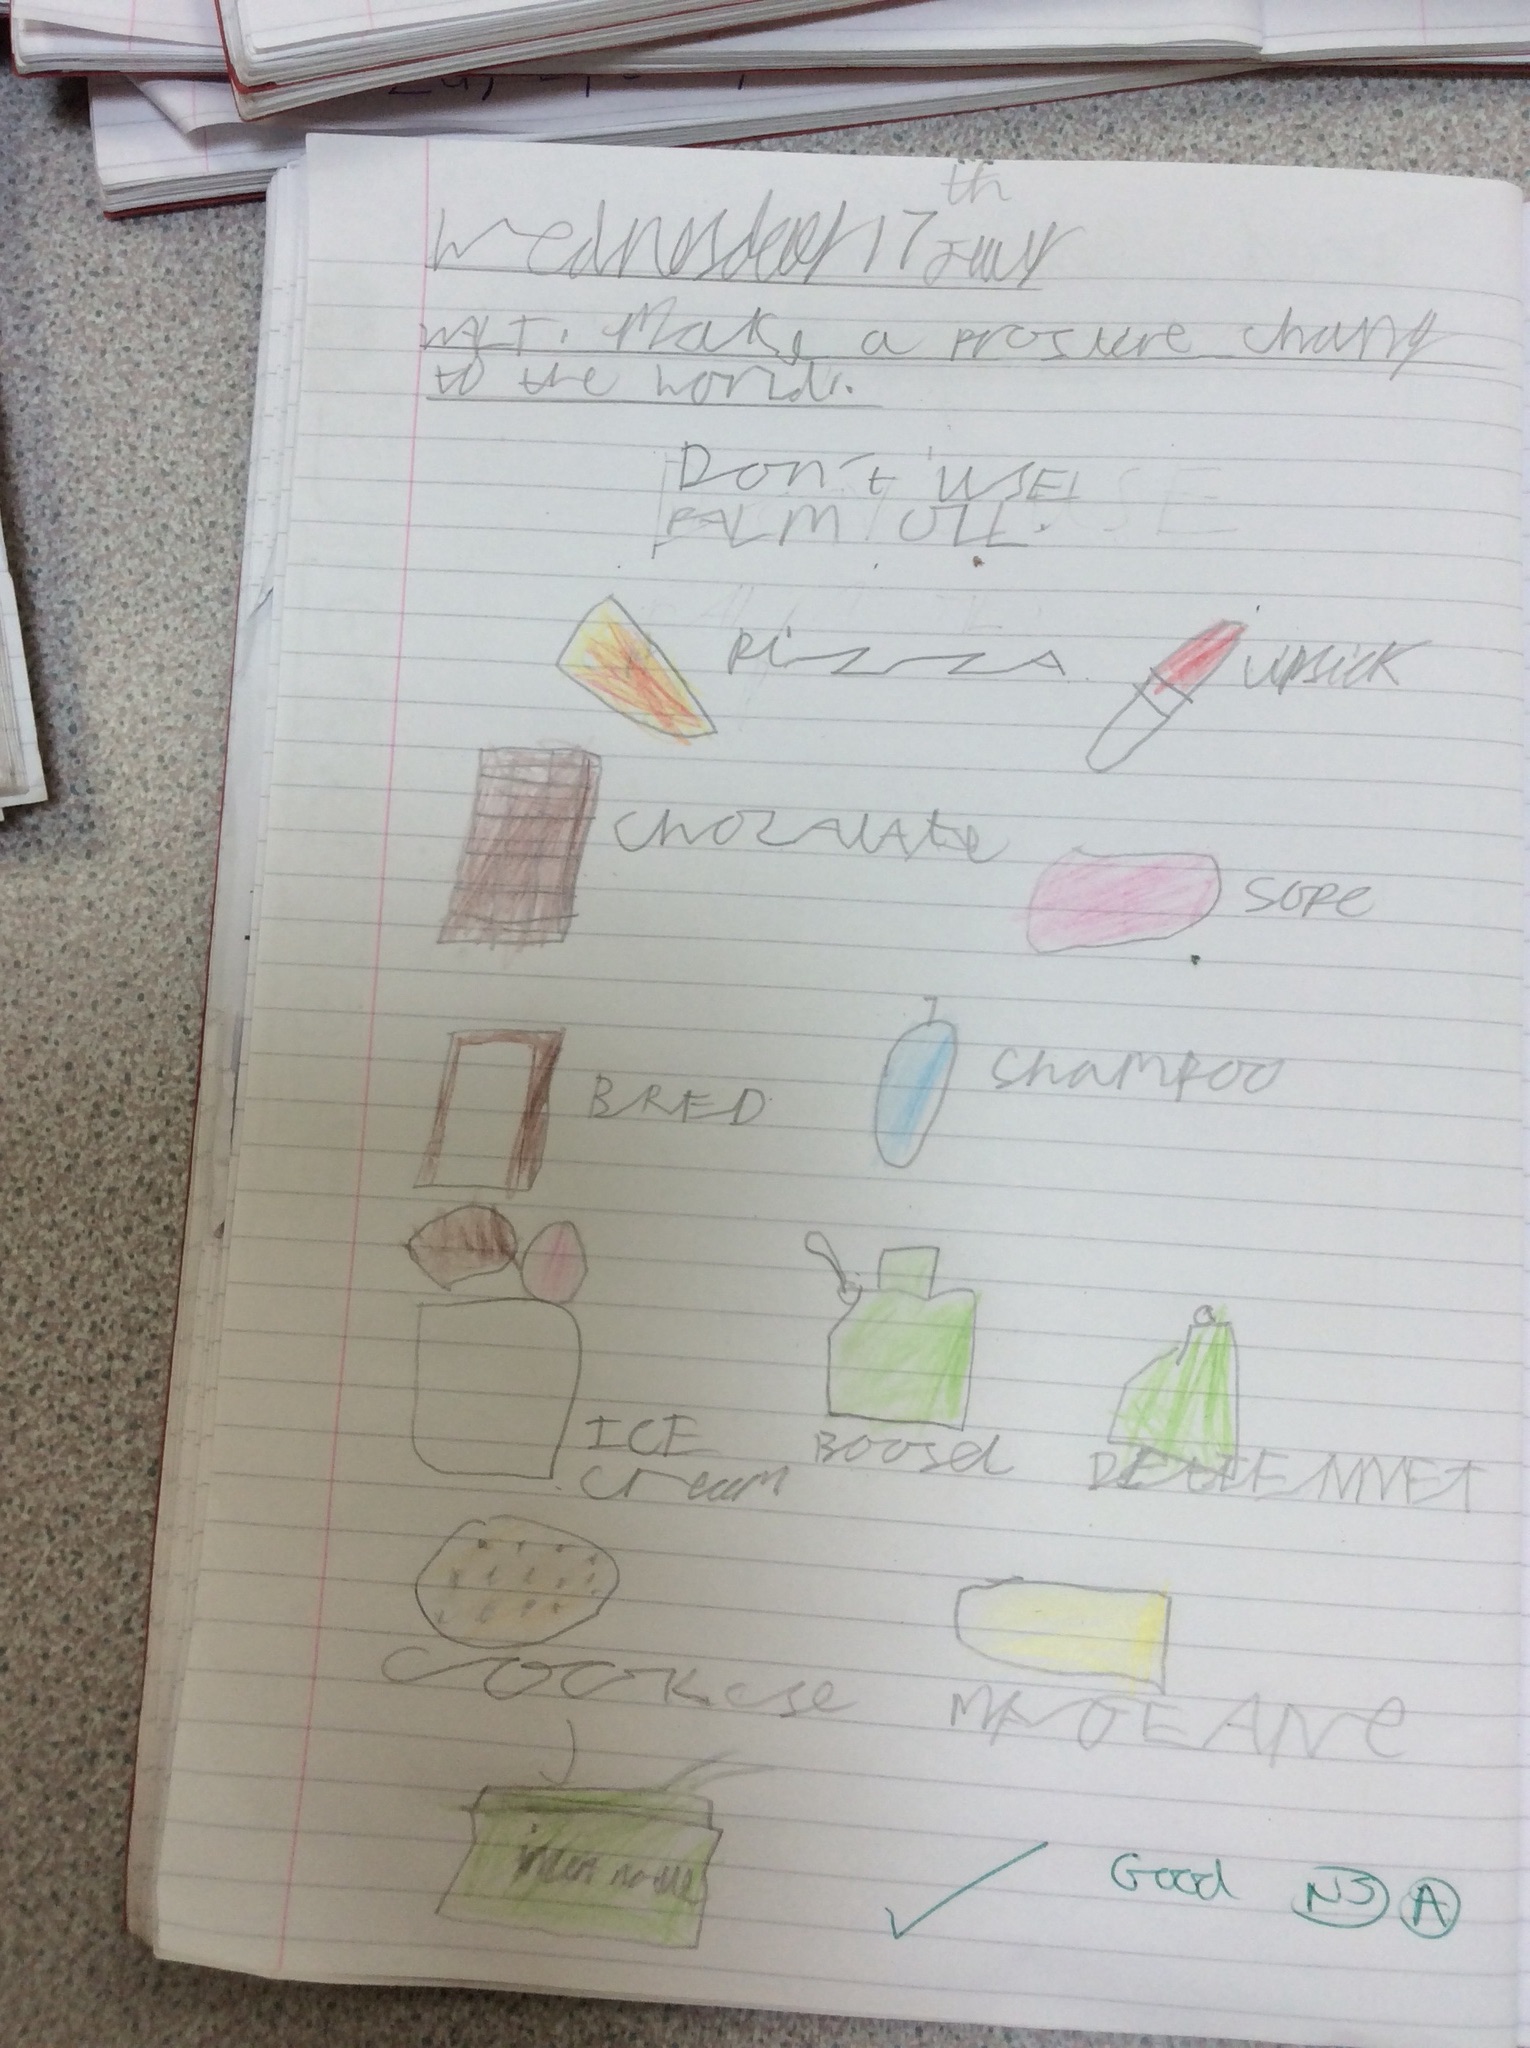 th
Wednesday 17 July
WALT: Make a prosiere chang
to the world.
Don't USE!
PALM OIL.
Pizza
Lipsick
chocalate
sope
BRED
shampoo
ICE
cream
DETEENNET
cookese
MAGEANE
insert name
Good NS A